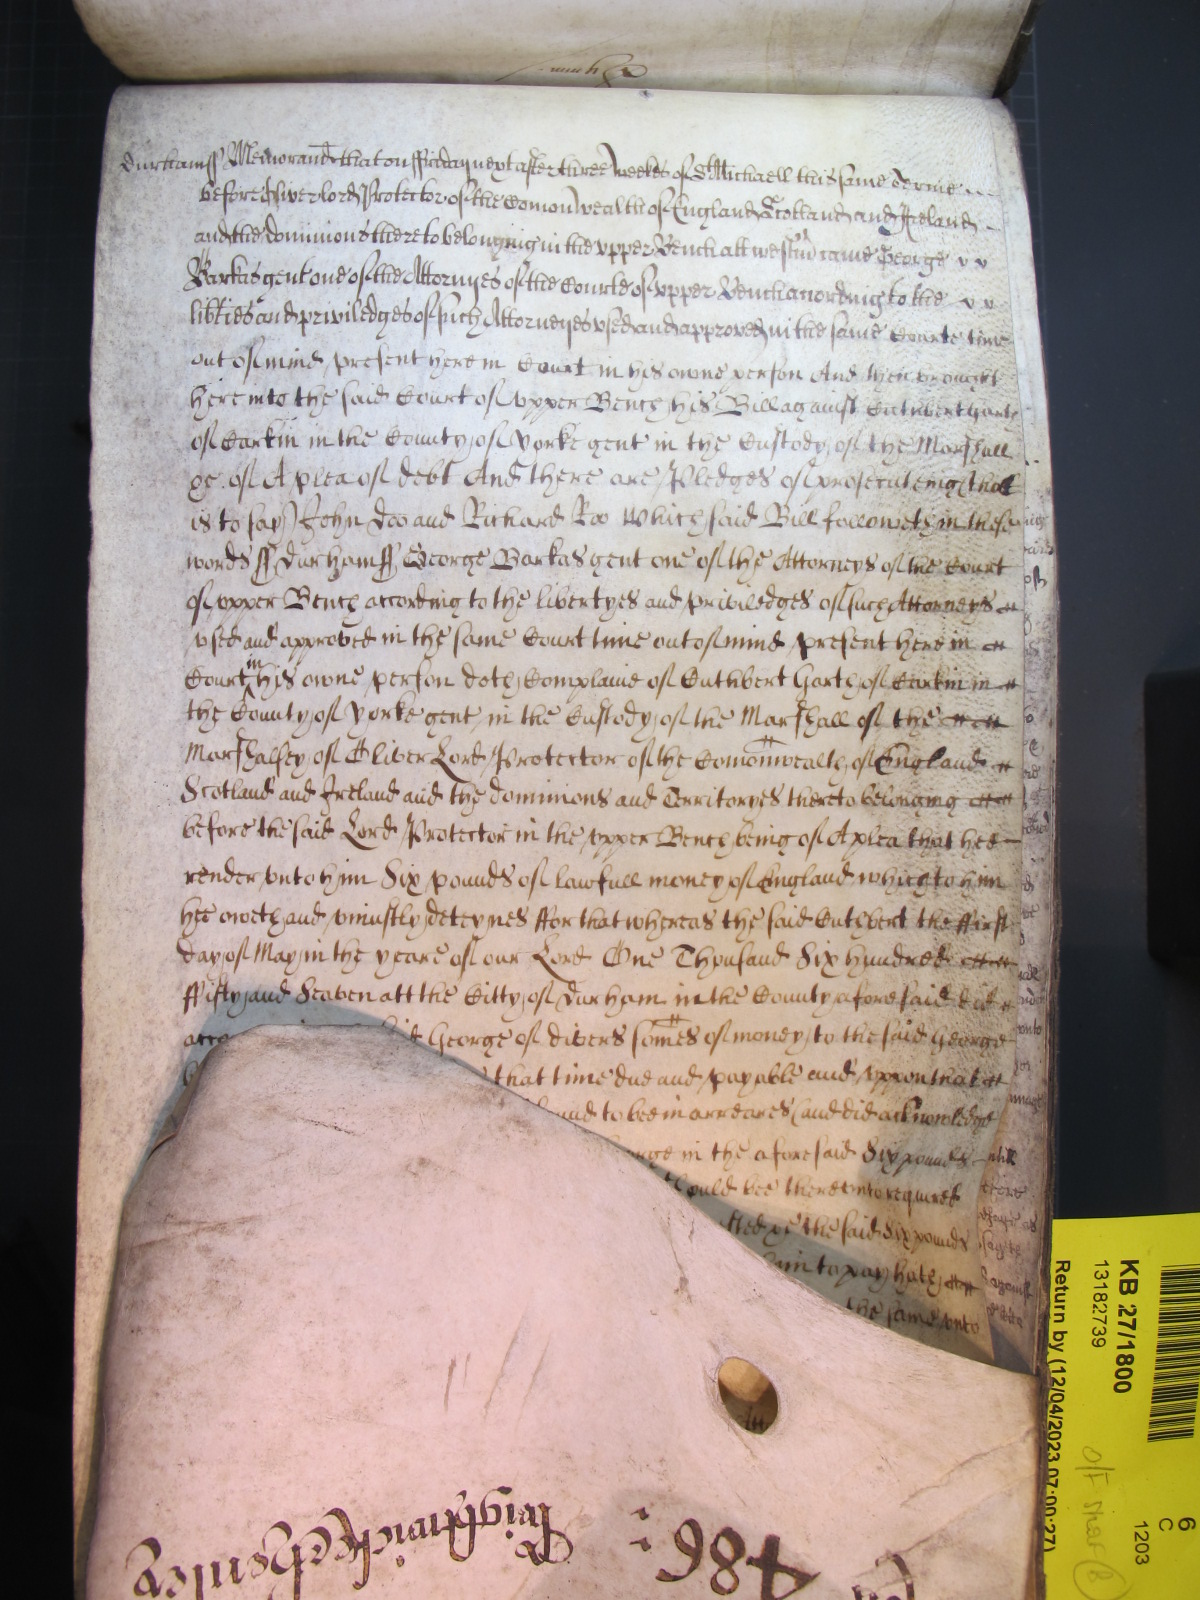 Durham ss Memorand that on ffriday next after three weekes of St Michaell this same Terme
before Oliver Lord Protector of the Comon wealth of England Scotland and Ireland
and the dominions thereto belonging in the upper Bench att westm came George
Barkas gent one of the Attornyes of the Courte of upper Bench according to the
libties and priviledges of such Attorneyes used and approved in the same Courte time
out of mind present here in Court in his owne person And then brought
here into the said Court of upper Bench his Bill against Cuthbert Garth
of Carkin in the County of Yorke gent in the Custody of the Marshall
&c of A plea of debt And there are Pledges of prosecuteing (that
is to say) John Doo and Richard Roo Which said Bill followeth in these
words ss Durham ss George Barkas gent one of the Attorneys of the Court
of upper Bench according to the libertyes and priviledges of such Attorneys
used and approved in the same Court time out of mind present here in
Court in his owne person doth Complaine of Cuthbert Garth of Carkin in
the County of Yorke gent in the Custody of the Marshall of the
Marshalsey of Oliver Lord Protector of the Comonwealth of England
Scotland and Ireland and the dominions and Territoryes thereto belonging
before the said Lord Protector in the upper Bench being of A plea that hee
render unto him Six pounds of lawfull money of England which to him
hee oweth and uniustly deteynes ffor that whereas the said Cuthbert the ffirst
day of May in the yeare of our Lord One Thousand Six hundred
ffifty and Seaven att the Citty of Durham in the County aforesaid did
George of divers somes of money to the said George
that time due and payable and uppon that
found to bee in arreares (and did acknowledge
in the aforesaid Six pounds
should bee thereunto required
the said Six pounds
to pay hath
the same unto
486
KB 27/1800
13182739
Return by (12/04/2023 07:00:27)
6
C
1203